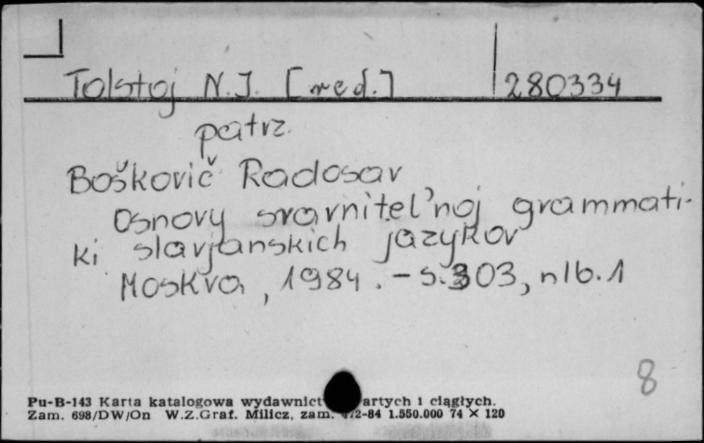 Tolstoj N.I. [red.] 280334
patrz
Boškovič Radosav
Osnovy sravnitel'noj grammati-
ki slavjanskich jazykov
Moskva, 1984. - s. 303, nlb. 1
8
Pu-B-143 Karta katalogowa wydawnict artych i ciągłych.
Zam. 698/DW/On W.Z.Graf. Milicz, zam. 2-84 1.550.000 74 × 120